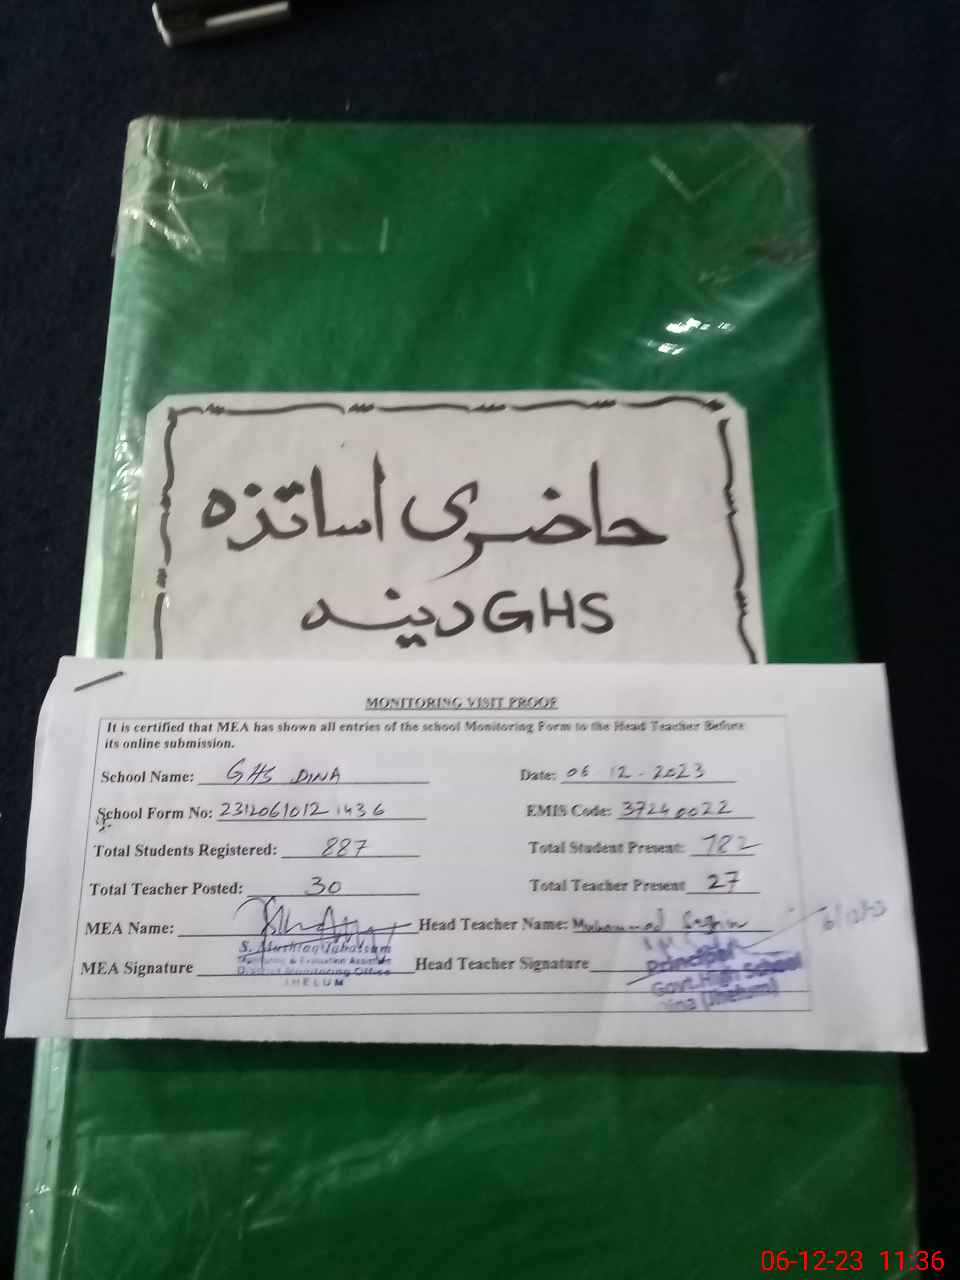 حاضری اساتذہ
GHS دینہ
MONITORING VISIT PROOF
It is certified that MEA has shown all entries of the school Monitoring Form to the Head Teacher Before
its online submission.
School Name: GHS DINA Date: 06 12 - 2023
School Form No: 2312061012 1436 EMIS Code: 37240022
Total Students Registered: 887 Total Student Present: 782
Total Teacher Posted: 30 Total Teacher Present 27
MEA Name: Head Teacher Name: Muhammad
S. Mushtaq Tabassum
Monitoring & Evaluation Assistant
MEA Signature District Monitoring Office Head Teacher Signature Principal
JHELUM Govt. High School
Dina (Jhelum)
06-12-23 11:36